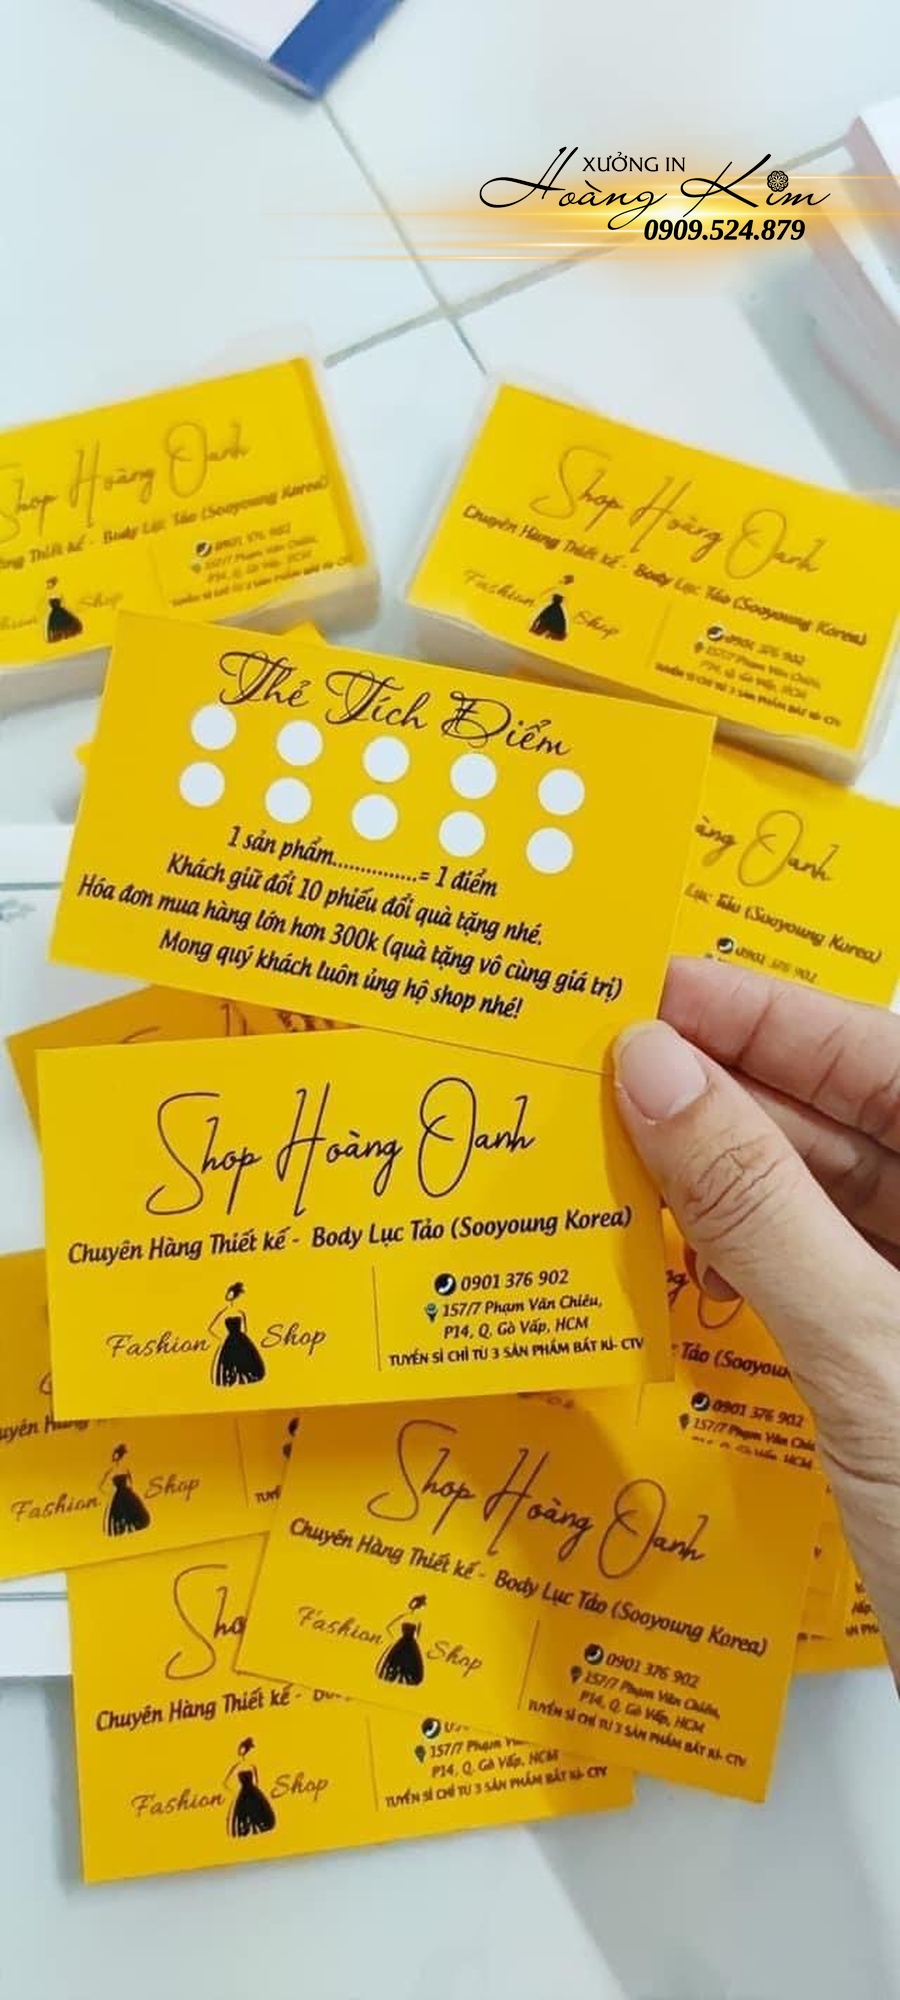 XƯỞNG IN
Hoàng Kim
0909.524.879
Shop Hoàng Oanh
Thiết kế - Body Lục Tảo (Sooyoung Korea)
0901 376 902
157/7 Phạm Văn Chiêu,
P14, Q. Gò Vấp, HCM
Shop
Shop Hoàng Oanh
Chuyên Hàng Thiết kế - Body Lục Tảo (Sooyoung Korea)
Fashion Shop
0901 376 902
157/7 Phạm Văn Chiêu,
P14, Q. Gò Vấp, HCM
TUYỂN SỈ CHỈ TỪ 3 SẢN PHẨM BẤT KÌ- CTV
Thẻ Tích Điểm
1 sản phẩm...............= 1 điểm
Khách giữ đổi 10 phiếu đổi quà tặng nhé.
Hóa đơn mua hàng lớn hơn 300k (quà tặng vô cùng giá trị)
Mong quý khách luôn ủng hộ shop nhé!
Oanh
Lục Tảo (Sooyoung Korea)
0901 376 902
Shop Hoàng Oanh
Chuyên Hàng Thiết kế - Body Lục Tảo (Sooyoung Korea)
Fashion Shop
0901 376 902
157/7 Phạm Văn Chiêu,
P14, Q. Gò Vấp, HCM
TUYỂN SỈ CHỈ TỪ 3 SẢN PHẨM BẤT KÌ- CTV
Tảo
0901 376 902
157/7 Phạm Văn
Fashion Shop
Shop Hoàng Oanh
Chuyên Hàng Thiết kế - Body Lục Tảo (Sooyoung Korea)
Fashion Shop
0901 376 902
157/7 Phạm Văn Chiêu,
P14, Q. Gò Vấp, HCM
TUYỂN SỈ CHỈ TỪ 3 SẢN PHẨM BẤT KÌ- CTV
Chuyên Hàng Thiết kế -
Fashion Shop
157/7 Phạm
P14, Q. Gò Vấp, HCM
TUYỂN SỈ CHỈ TỪ 3 SẢN PHẨM BẤT KÌ- CTV